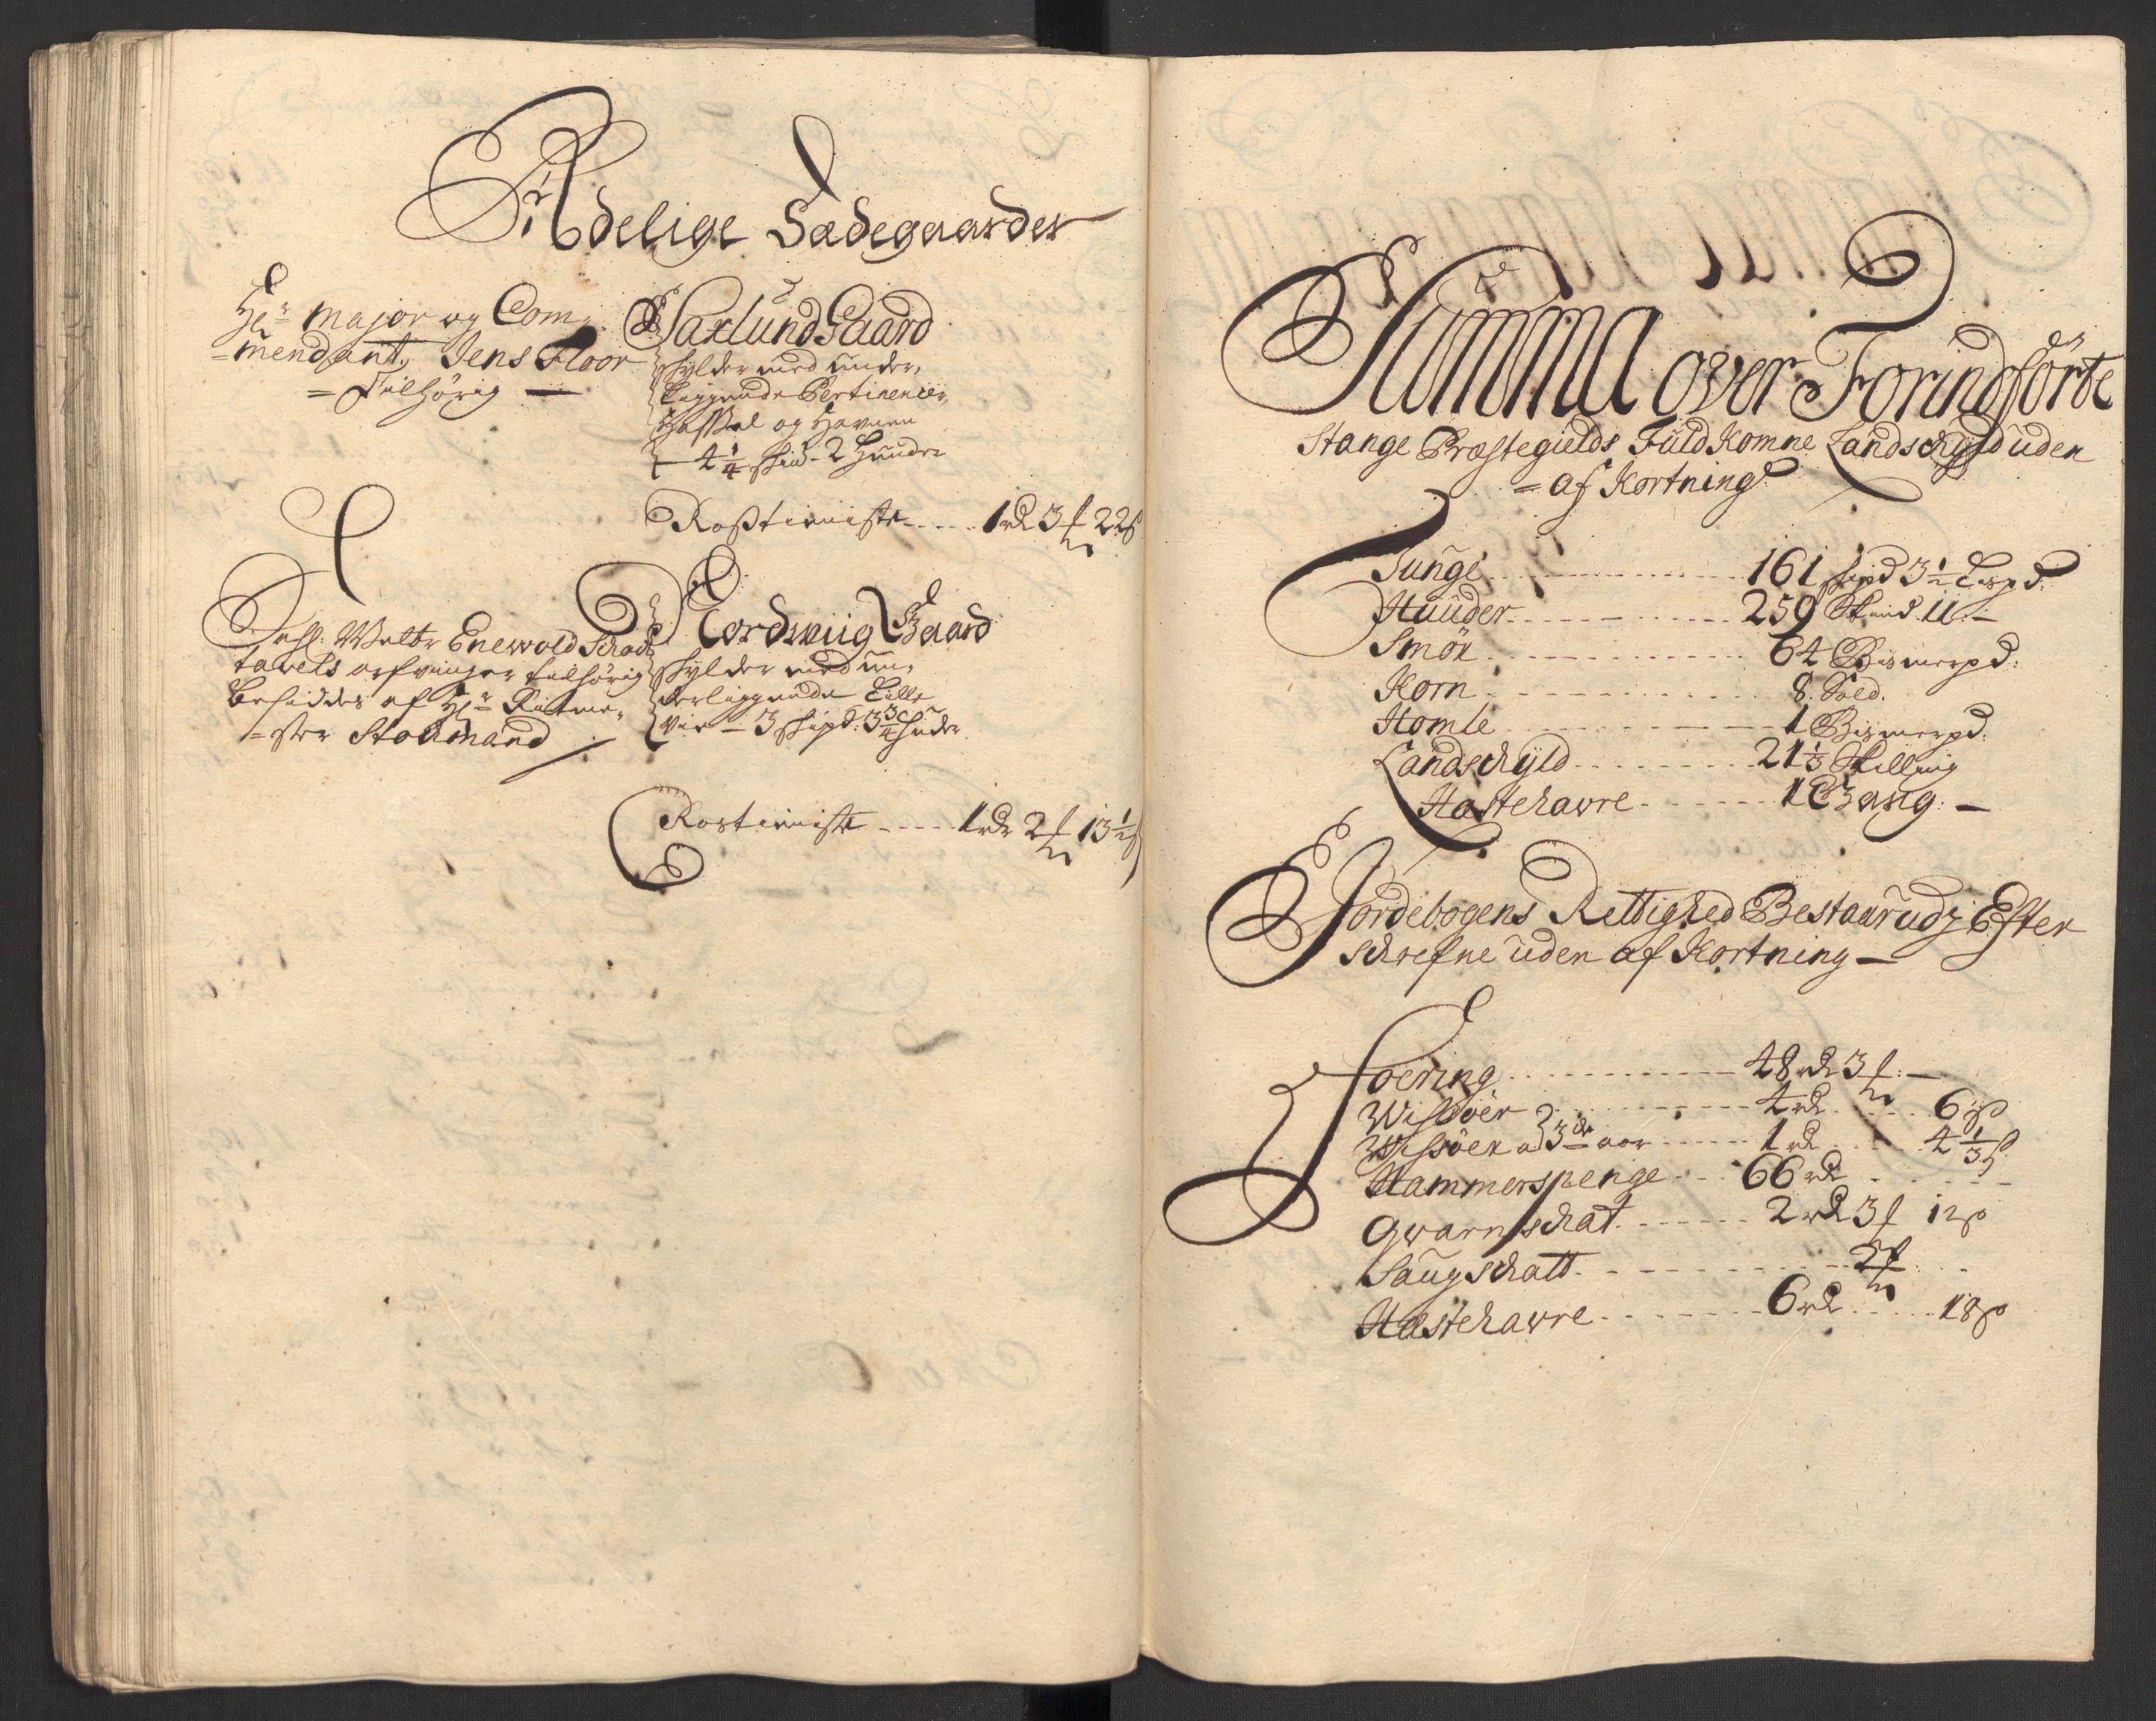 Adelige Sædegaarder
Hr. Major og Com-
mendant, Jens Floor
= Tilhörig —
Saxlund Gaard
schylder med under-
liggende Pertinencier,
og Hafnen
4 1/4 skind - 2 Huuder
Rosztieniste .... 1 rd 3 ort 22 s
Enevold
tavels arfvinger tilhörig
besiddes af Hr. Ritme-
= ster Stockmand
Nordviig Gaard
schylder med un-
derliggende Lille
Vie - 3 schpd. 3 3/4 huder
Rostieniste .... 1 rd 2 ort 13 1/2 s
Summa over Forindförte
Stange Præstegields Fuldkomne Landschyld uden
= af Kortning
Tunge .... 161 schpd 3 1/2 Lispd.
Huuder .... 259 Skind 11. —
Smör .... 64 Bismerpd:
Korn .... 8. Sold.
Homle .... 1 Bismerpd:
Landschyld .... 21 1/3 Skilling
Hæstehavre .... 1 Gang: —
Jordebogens Rettighed Bestaar udj Efter
schrefne uden af Kortning —
Foering .... 48 rd 3 ort: —
Wissöer .... 4 rd .... 6 s
Wissöer a 3de aar .... 1 rd .... 4 1/3 s
Hammerspenge .... 66 rd ....
Qvarnschat .... 2 rd 3 ort 12 s
Saugschatt .... 2 ort ....
Hæstehavre .... 6 rd .... 18 s